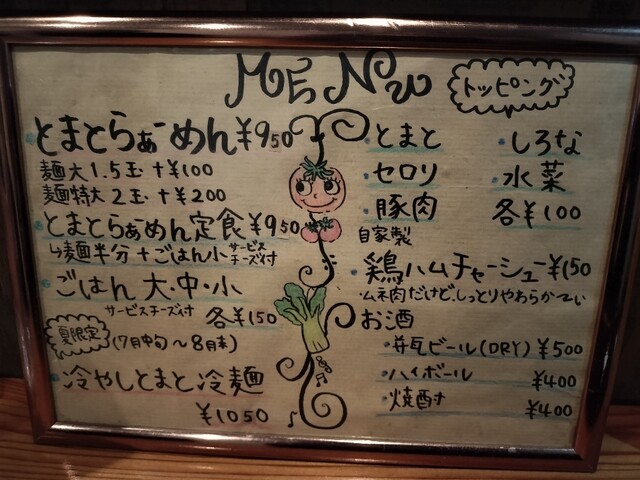 MENU
とまとらぁーめん ¥950
麺大1.5玉 +¥100
麺特大2玉 +¥200
とまとらぁめん定食 ¥950
↳麺半分+ごはん小 サービスチーズ付
ごはん 大・中・小
サービスチーズ付 各¥150
夏限定 (7月中旬〜8月末)
・冷やしとまと冷麺
¥1050
トッピング
・とまと ・しろな
・セロリ ・水菜
・豚肉 各¥100
自家製
・鶏ハムチャーシュー ¥150
ムネ肉だけど、しっとりやわらかでぃ
お酒
・並瓦ビール(DRY) ¥500
・ハイボール ¥400
・焼酎 ¥400